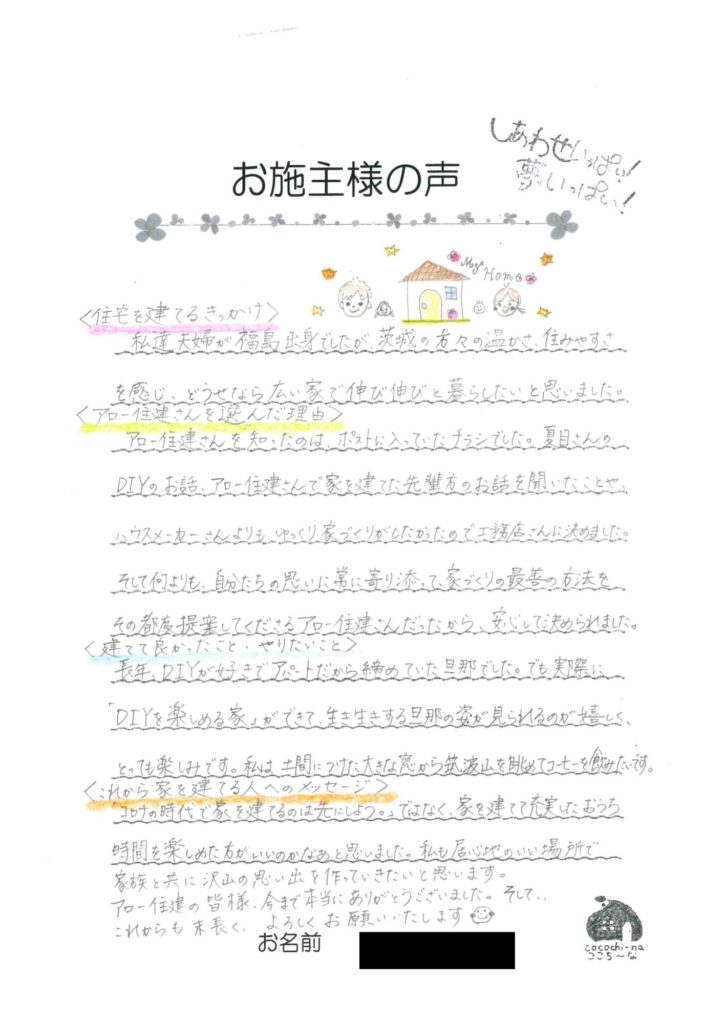 しあわせいっぱい!
夢いっぱい!
お施主様の声
My Home
<住宅を建てるきっかけ>
私達夫婦が福島出身でしたが、茨城の方々の温かさ、住みやすさ
を感じ、どうせなら広い家で伸び伸びと暮らしたいと思いました。
<アロー住建さんを選んだ理由>
アロー住建さんを知ったのは、ポストに入っていたチラシでした。夏目さんの
DIYのお話、アロー住建さんで家を建てた先輩方のお話を聞いたことや、
ハウスメーカーさんよりもゆっくり家づくりがしたかったので工務店さんに決めました。
そして何よりも、自分たちの思いに常に寄り添って、家づくりの最善の方法を
その都度提案してくださるアロー住建さんだったから、安心して決められました。
<建てて良かったこと・やりたいこと>
長年、DIYが好きでアパートだから締めていた旦那でした。でも実際に
「DIYを楽しめる家」ができて、生き生きする旦那の姿が見られるのが嬉しく、
とっても楽しみです。私は土間につけた大きな窓から筑波山を眺めてコーヒーを飲みたいです。
<これから家を建てる人へのメッセージ>
「コロナの時代で家を建てるのは先にしよう。」ではなく、家を建てて充実したおうち
時間を楽しめた方がいいのかなあと思いました。私も居心地のいい場所で
家族と共に沢山の思い出を作っていきたいと思います。
アロー住建の皆様、今まで本当にありがとうございました。そして、、
これからも末長く、よろしくお願いいたします
お名前
cocochi-na
ここち〜な